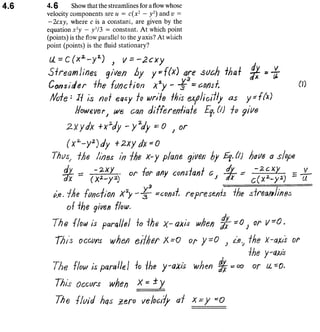 4.6
4.6 Show that the streamlines for a flow whose
velocity components are u = c(x² − y²) and v =
−2cxy, where c is a constant, are given by the
equation x²y − y³/3 = constant. At which point
(points) is the flow parallel to the y axis? At which
point (points) is the fluid stationary?
u = c(x²-y²) , v = -2cxy
Streamlines given by y=f(x) are such that dy/dx = v/u
Consider the function x²y - y³/3 = const. (1)
Note: It is not easy to write this explicitly as y=f(x)
However, we can differentiate Eq.(1) to give
2xy dx + x² dy - y² dy = 0 , or
(x²-y²) dy + 2xy dx = 0
Thus, the lines in the x-y plane given by Eq.(1) have a slope
dy/dx = -2xy/(x²-y²) or for any constant c, dy/dx = -2cxy/c(x²-y²) = v/u
i.e. the function x²y - y³/3 = const. represents the streamlines
of the given flow.
The flow is parallel to the x-axis when dy/dx = 0, or v=0.
This occurs when either x=0 or y=0 , i.e., the x-axis or
the y-axis
The flow is parallel to the y-axis when dy/dx = ∞ or u=0.
This occurs when x = ±y
The fluid has zero velocity at x=y=0